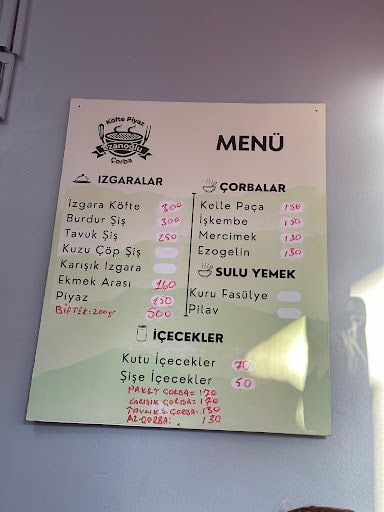 Köfte Piyaz
Ozanoğlu
Çorba
MENÜ
IZGARALAR
Izgara Köfte 300
Burdur Şiş 300
Tavuk Şiş 250
Kuzu Çöp Şiş
Karışık Izgara
Ekmek Arası 160
Piyaz 150
BİFTEK: 200gr 500
ÇORBALAR
Kelle Paça 150
İşkembe 150
Mercimek 130
Ezogelin 130
SULU YEMEK
Kuru Fasülye
Pilav
İÇECEKLER
Kutu İçecekler 70
Şişe İçecekler 50
PAKET ÇORBA= 170
KARIŞIK ÇORBA= 170
TAVUK S ÇORBA= 130
AZ ÇORBA: 130